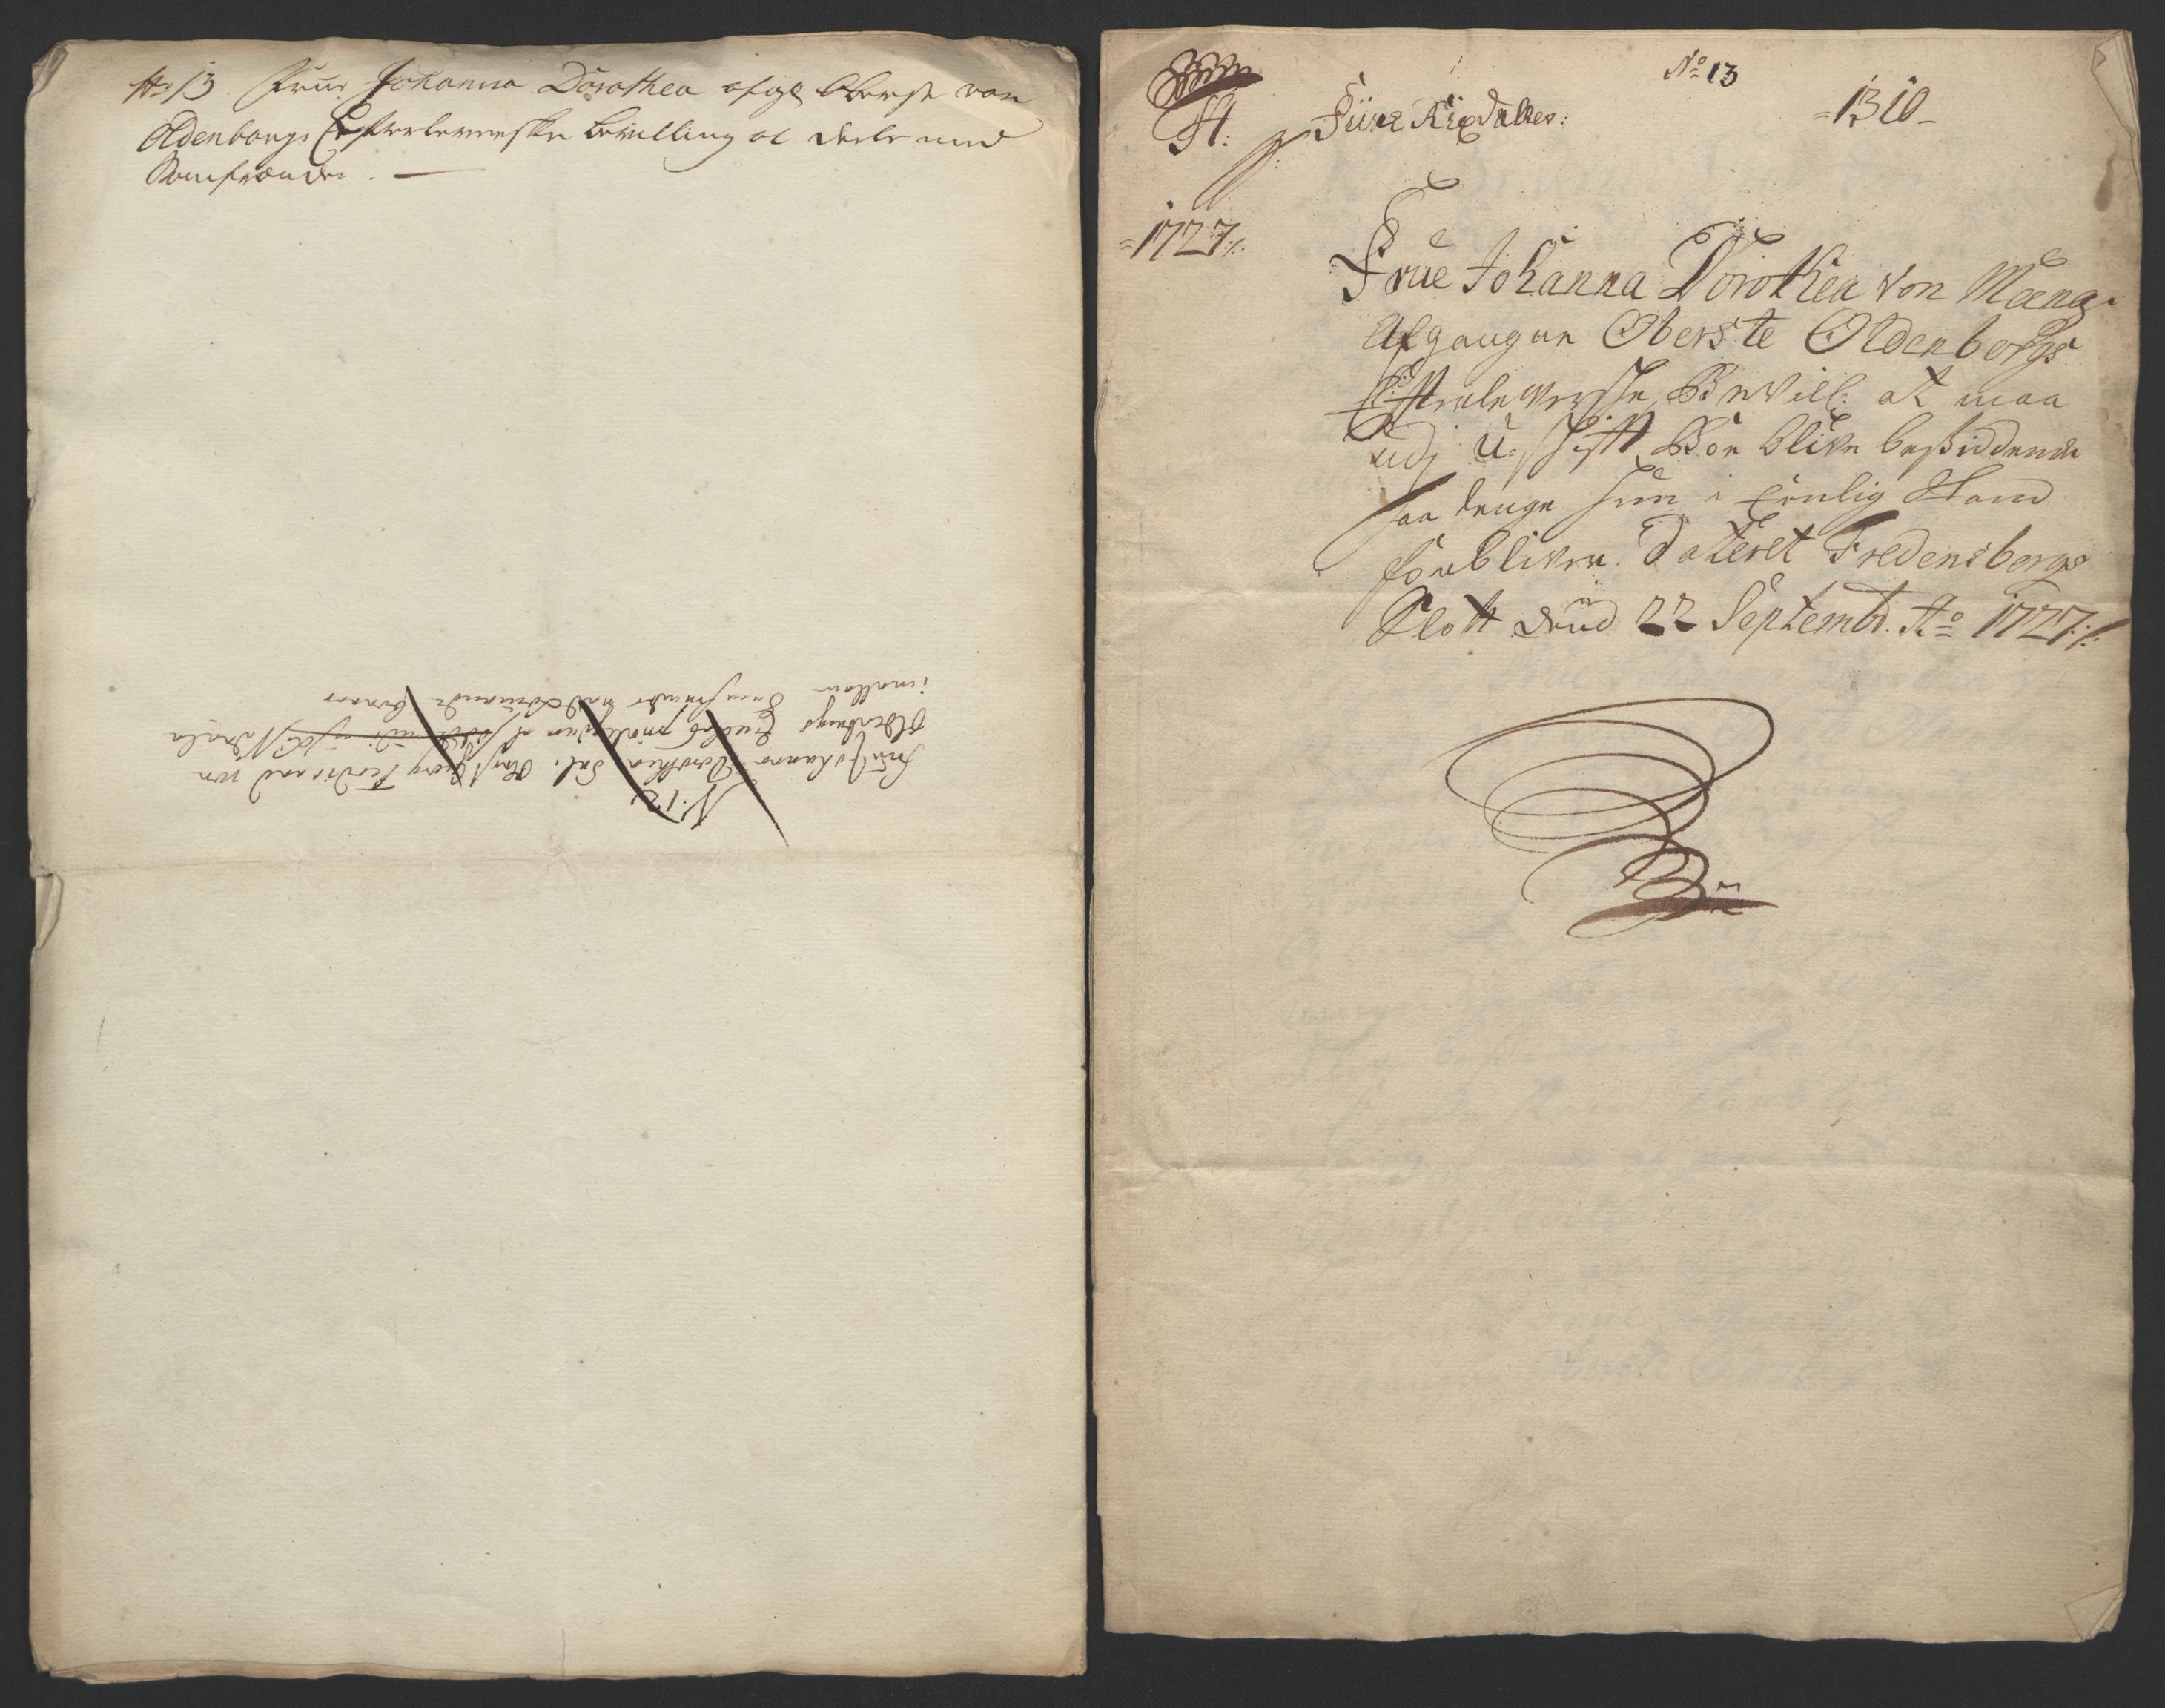 No 13. Frue Johanna Dorothea afg. Oberst von
Oldenborgs Efterleverske bevilling at deele med
Samfrænder. —
N. 13
Frue Johanna Dorothea Sal. Obrst Georg Ferdinand von
Oldenburgs
imellem
No 13
A: Fiire Rixdaller: =1310-
=1727:/:
Frue Johanna Dorothea Von Mæng.
Afgangne Oberste Oldenborgs
Efterleverske, Bevill: at maa
udj U-skift Boe blive besiddende
saa lenge hun i Eenlig Stand
forbliver. Dateret Fredensbergs
Slott dend 22 Septembr. Ao 1727:/: